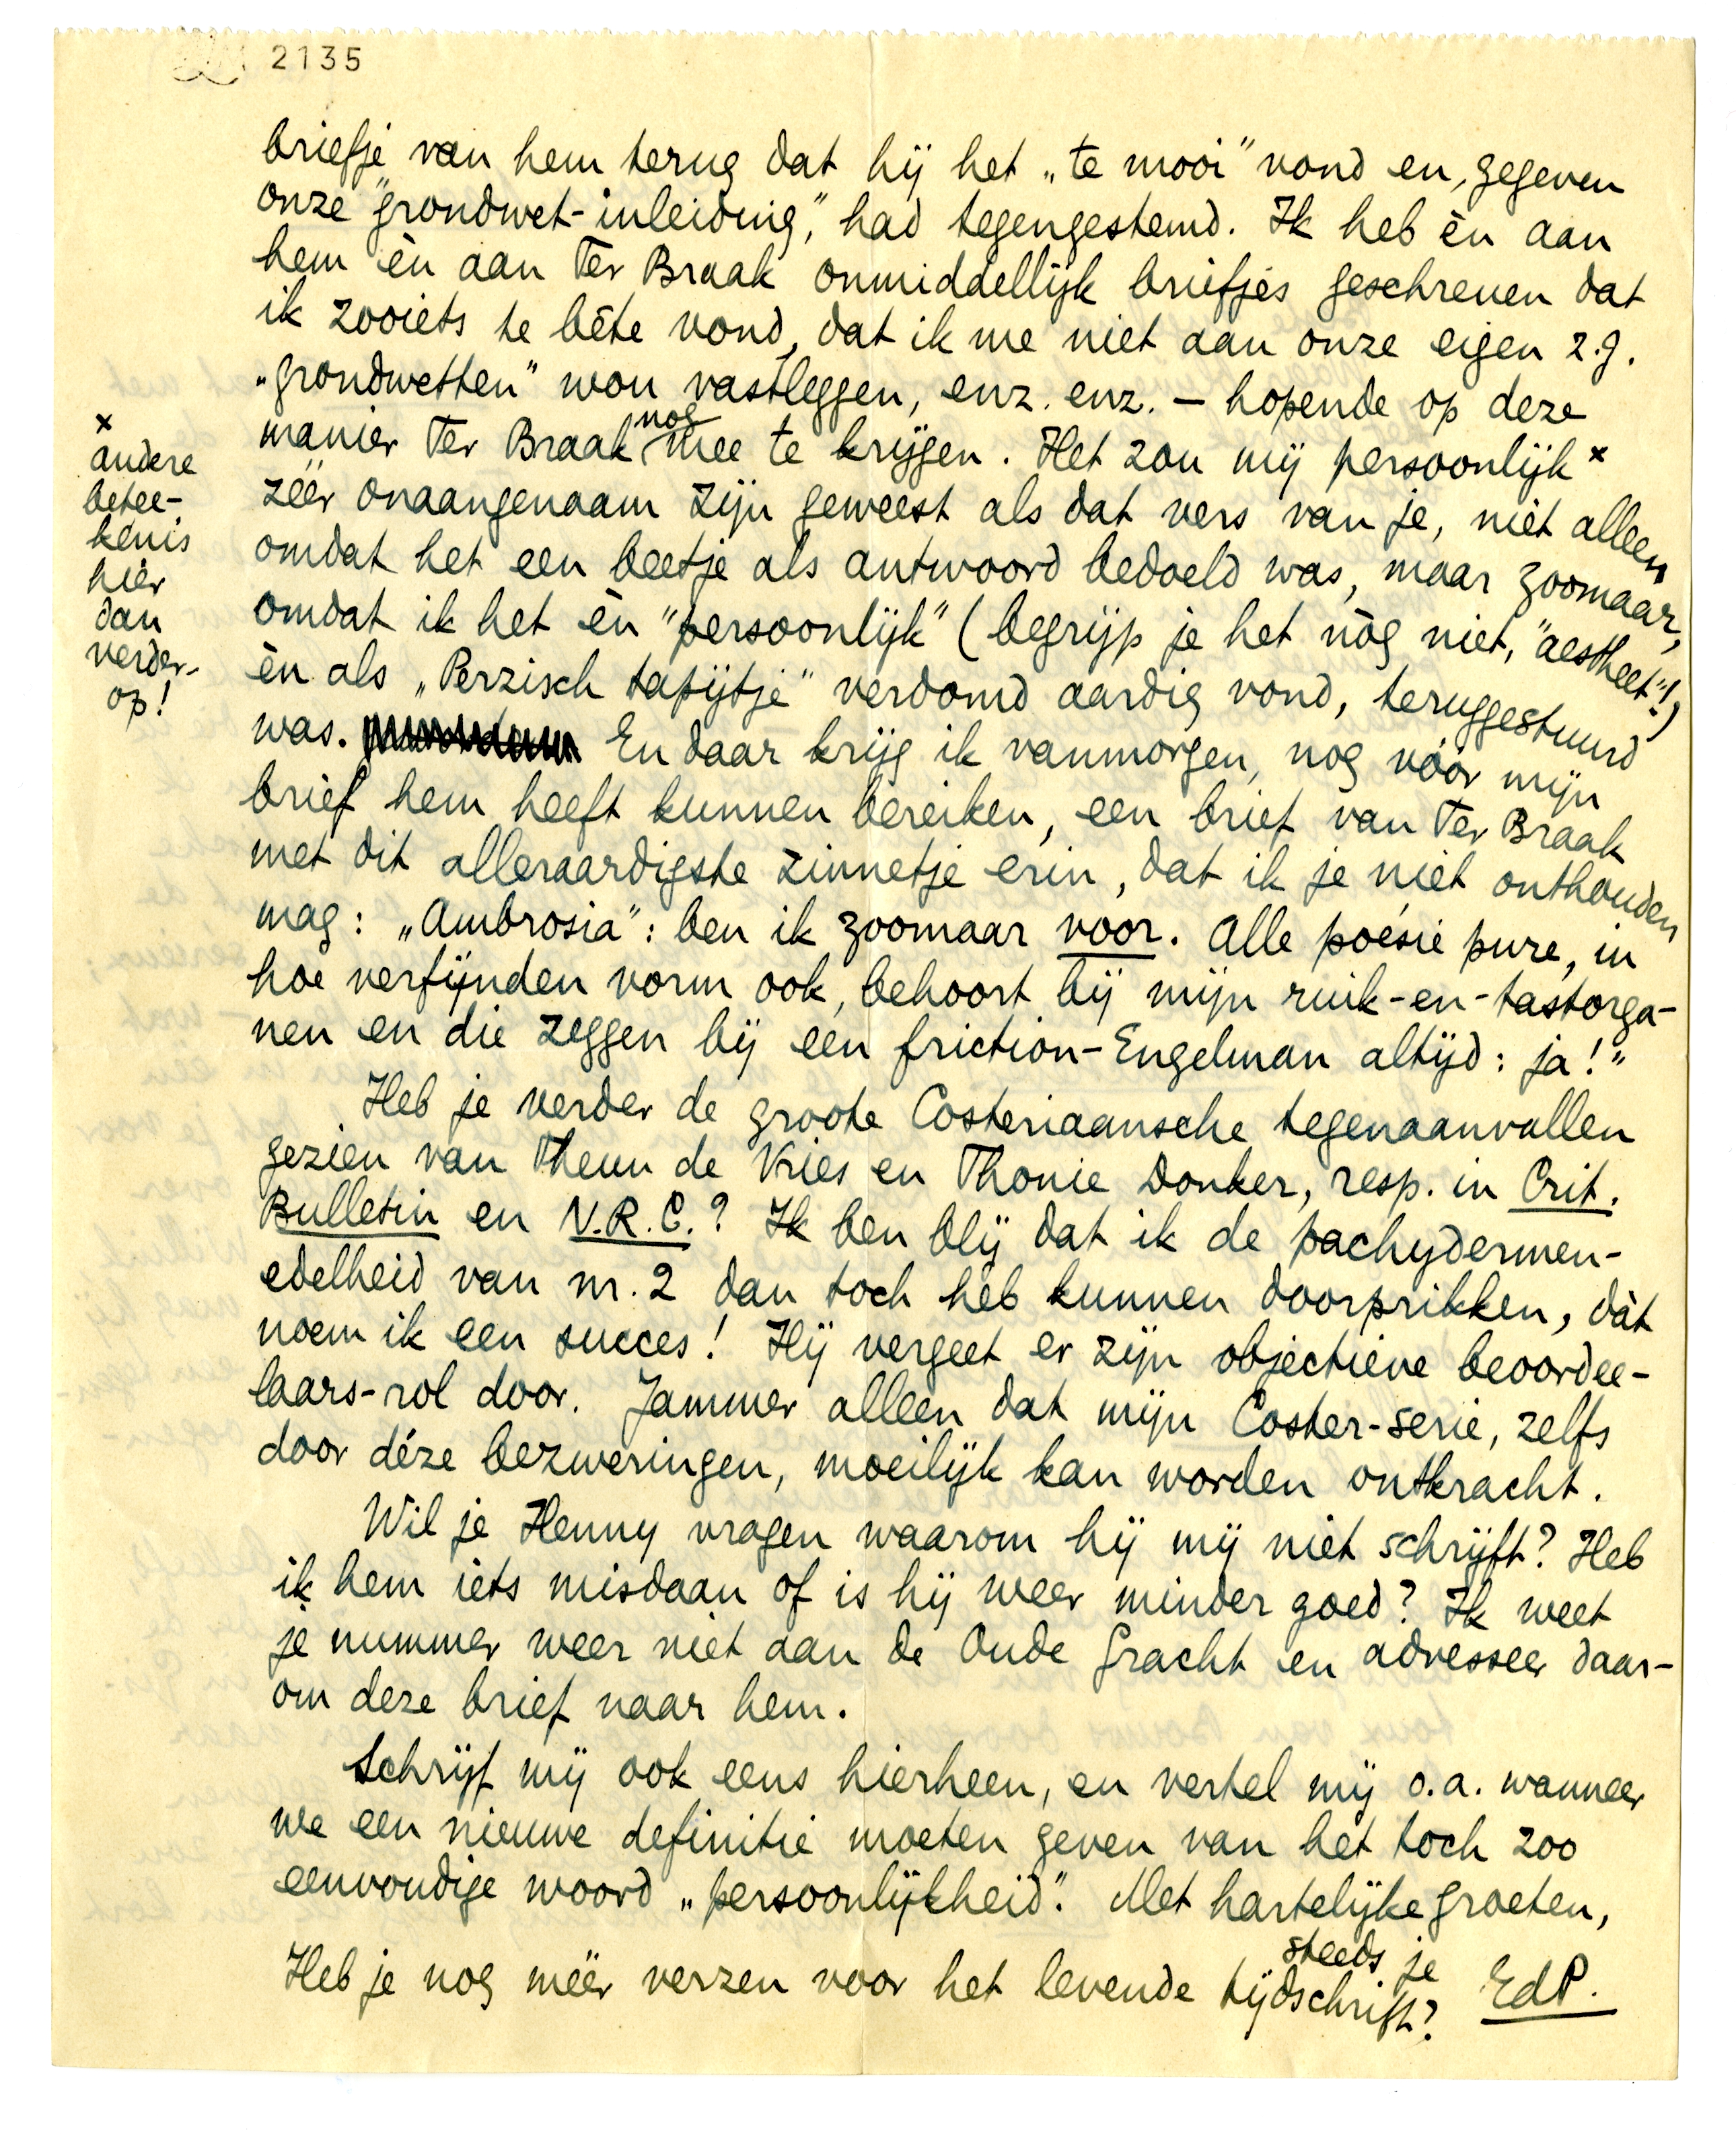 2135
briefje van hem terug dat hij het „te mooi” vond en, gegeven
onze "grondwet-inleiding," had tegengestemd. Ik heb èn aan
hem èn aan Ter Braak onmiddellijk briefjes geschreven dat
ik zooiets te bête vond, dat ik me niet aan onze eigen z.g.
„grondwetten” wou vastleggen, enz. enz. — hopende op deze
manier Ter Braak nog mee te krijgen. Het zou mij persoonlijk ×
zéér onaangenaam zijn geweest als dat vers van je, niet alleen
omdat het een beetje als antwoord bedoeld was, maar zoomaar,
omdat ik het èn "persoonlijk" (begrijp je het nòg niet, "aestheet"!)
èn als „Perzisch tapijtje” verdomd aardig vond, teruggestuurd
was. En daar krijg ik vanmorgen, nog vóór mijn
brief hem heeft kunnen bereiken, een brief van Ter Braak
met dit alleraardigste zinnetje erin, dat ik je niet onthouden
mag: „Ambrosia”: ben ik zoomaar voor. Alle poésie pure, in
hoe verfijnden vorm ook, behoort bij mijn ruik-en-tastorga-
nen en die zeggen bij een friction-Engelman altijd: ja!"
Heb je verder de groote Costeriaansche tegenaanvallen
gezien van Theun de Vries en Thonie Donker, resp. in Crit.
Bulletin en N.R.C.? Ik ben blij dat ik de pachydermen-
edelheid van nr. 2 dan toch heb kunnen doorprikken, dàt
noem ik een succes! Hij vergeet er zijn objectieve beoordee-
laars-rol door. Jammer alleen dat mijn Coster-serie, zelfs
door déze bezweringen, moeilijk kan worden ontkracht.
Wil je Henny vragen waarom hij mij niet schrijft? Heb
ik hem iets misdaan of is hij weer minder goed? Ik weet
je nummer weer niet aan de Oude Gracht en adresseer daar-
om deze brief naar hem.
Schrijf mij ook eens hierheen, en vertel mij o.a. wanneer
we een nieuwe definitie moeten geven van het toch zoo
eenvoudige woord „persoonlijkheid”. Met hartelijke groeten,
steeds je
EdP.
Heb je nog méér verzen voor het levende tijdschrift?
×
andere
betee-
kenis
hier
dan
verder-
op!